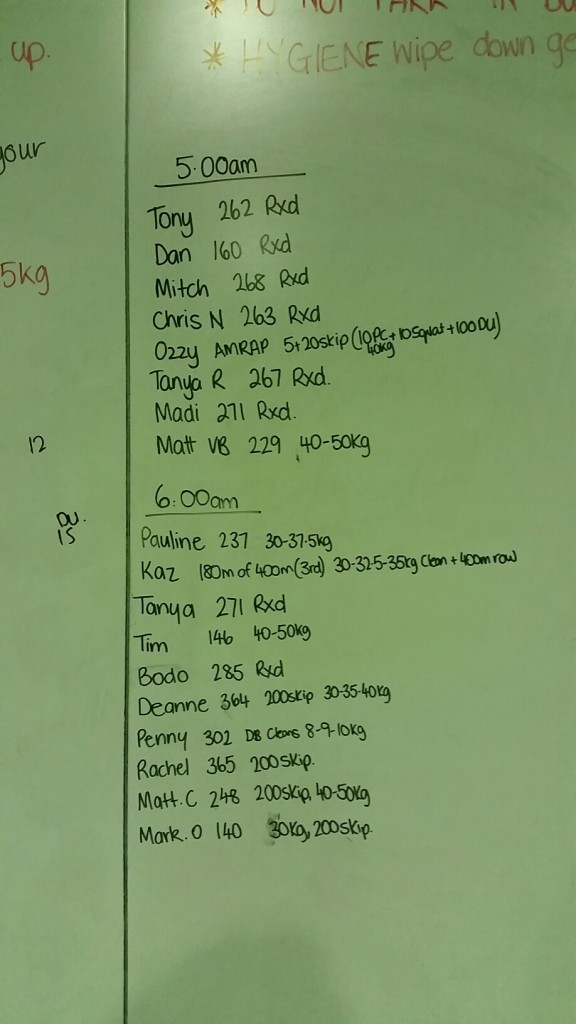 up.
* HYGIENE wipe down
your
5kg
5:00am
Tony 262 Rxd
Dan 160 Rxd
Mitch 268 Rxd
Chris N 263 Rxd
Ozzy AMRAP 5+20skip (10PC+10Squat+100DU)
40kg
Tanya R 267 Rxd.
Madi 271 Rxd.
Matt VB 229 40-50kg
12
DU.
15
6:00am
Pauline 237 30-37.5kg
Kaz 180m of 400m (3rd) 30-32.5-35kg Clean + 400m row
Tanya 271 Rxd
Tim 146 40-50kg
Bodo 285 Rxd
Deanne 364 200skip 30-35-40kg
Penny 302 DB Cleans 8-9-10kg
Rachel 365 200skip.
Matt.C 248 200skip, 40-50kg
Mark.O 140 30kg, 200skip.